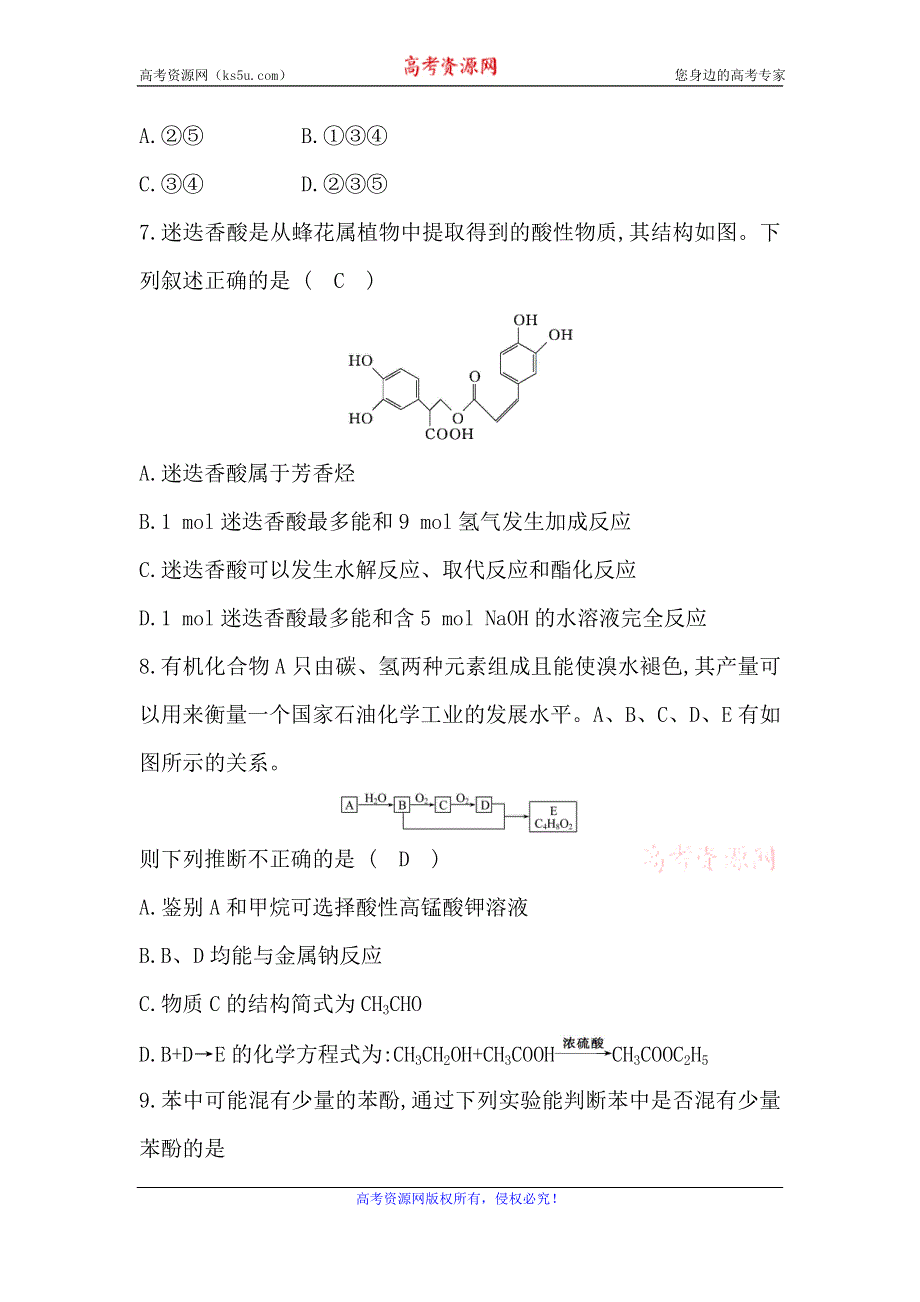 高考资源网（ks5u.com） 高考资源网 您身边的高考专家
A.②⑤ B.①③④
C.③④ D.②③⑤
7.迷迭香酸是从蜂花属植物中提取得到的酸性物质,其结构如图。下
列叙述正确的是 ( C )
OH
OH
HO
O
HO
O
COOH
A.迷迭香酸属于芳香烃
B.1 mol迷迭香酸最多能和9 mol氢气发生加成反应
C.迷迭香酸可以发生水解反应、取代反应和酯化反应
D.1 mol迷迭香酸最多能和含5 mol NaOH的水溶液完全反应
8.有机化合物A只由碳、氢两种元素组成且能使溴水褪色,其产量可
以用来衡量一个国家石油化学工业的发展水平。A、B、C、D、E有如
图所示的关系。
A H₂O B O₂ C O₂ D E
C₄H₈O₂
则下列推断不正确的是 ( D ) 高考资源网
A.鉴别A和甲烷可选择酸性高锰酸钾溶液
B.B、D均能与金属钠反应
C.物质C的结构简式为CH₃CHO
D.B+D→E的化学方程式为:CH₃CH₂OH+CH₃COOH浓硫酸→CH₃COOC₂H₅
9.苯中可能混有少量的苯酚,通过下列实验能判断苯中是否混有少量
苯酚的是
高考资源网版权所有，侵权必究！